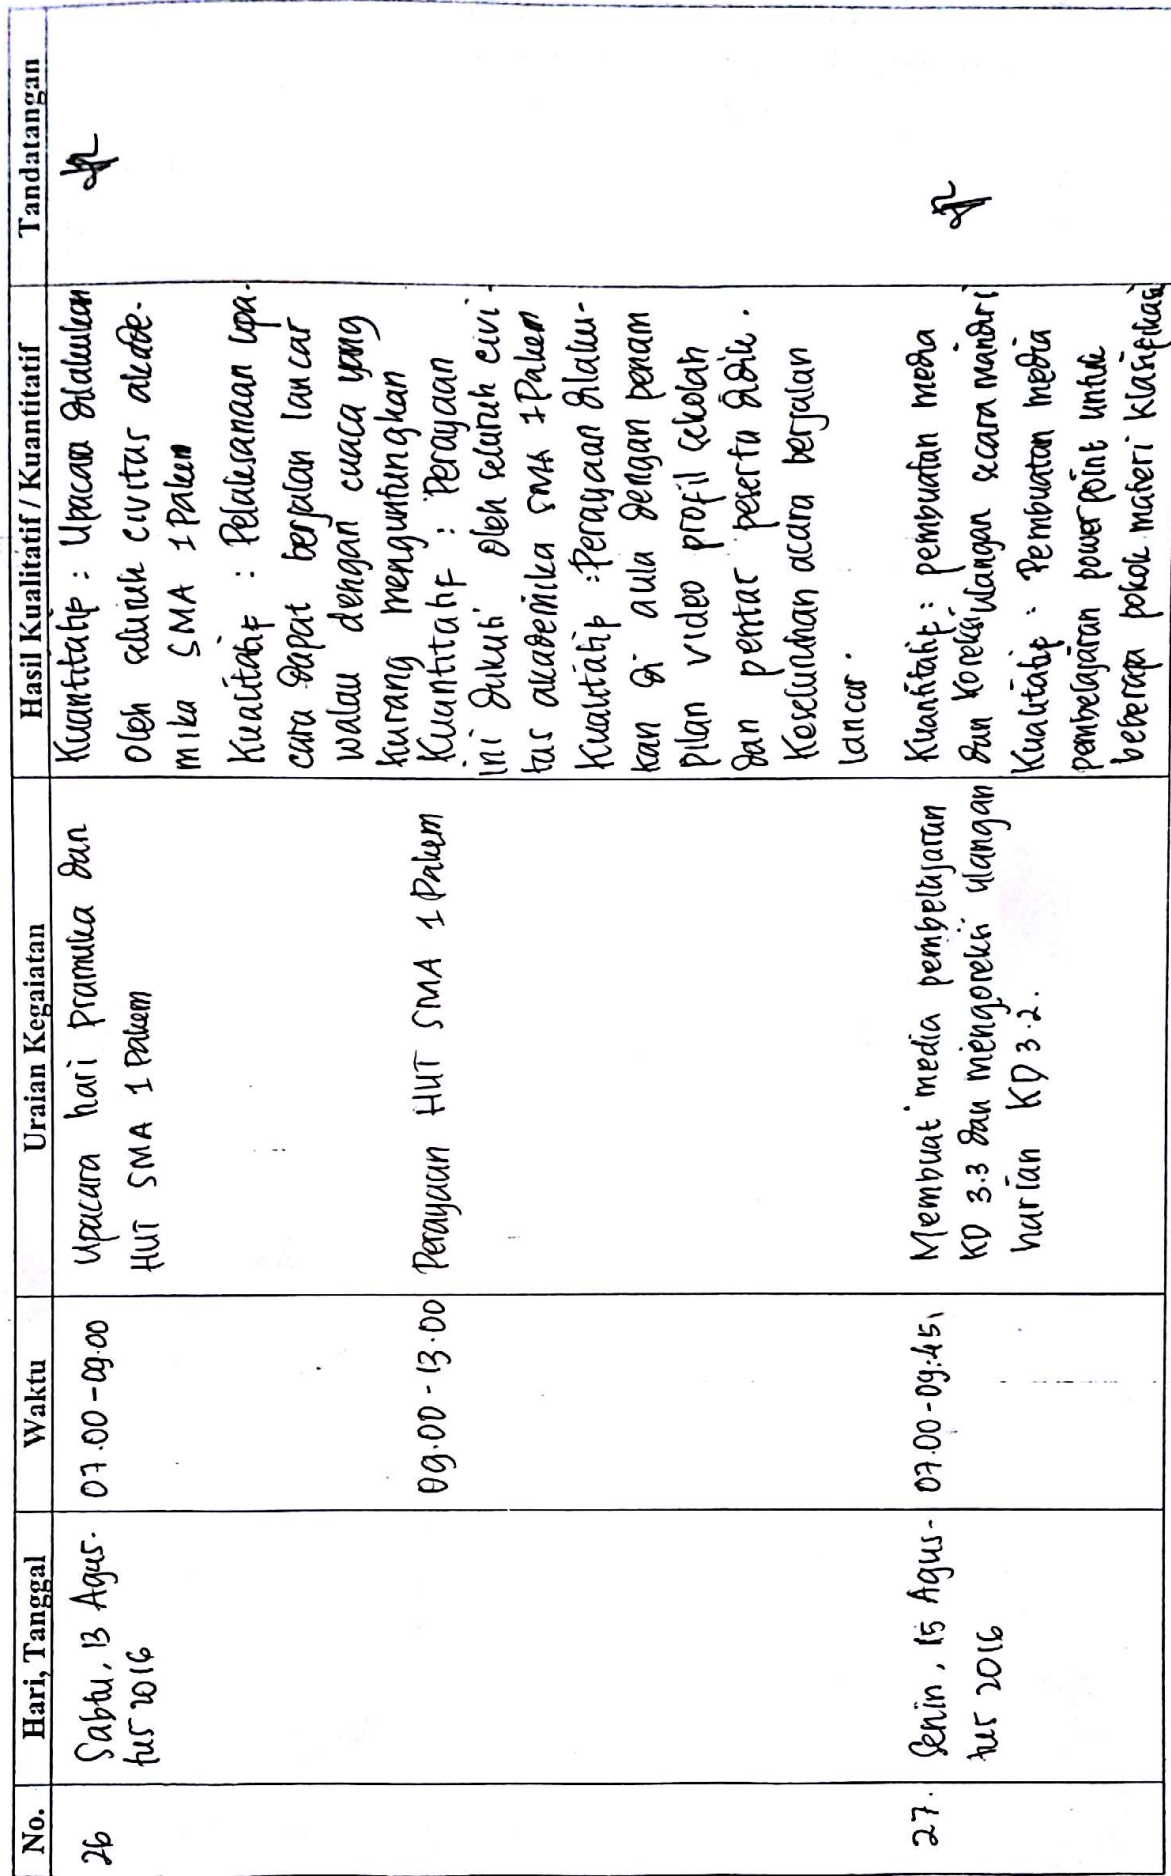 No. Hari, Tanggal Waktu Uraian Kegaiatan Hasil Kualitatif / Kuantitatif Tandatangan
26 Sabtu, 13 Agus-
tus 2016
07.00 - 09.00
Upacara hari pramuka dan
HUT SMA 1 Pakem
Kuantitatif : Upacara dilakukan
oleh seluruh civitas akade-
mika SMA 1 Pakem
Kualitatif : Pelaksanaan upa-
cara dapat berjalan lancar
walau dengan cuaca yang
kurang menguntungkan
09.00 - 13.00
Perayaan HUT SMA 1 Pakem
Kuantitatif : Perayaan
ini diikuti oleh seluruh civi
tas akademika SMA 1 Pakem
Kualitatif : Perayaan dilaku-
kan di aula dengan penam
pilan video profil sekolah
dan pentas peserta didik.
Keseluruhan acara berjalan
lancar.
27. Senin, 15 Agus-
tus 2016
07.00 - 09.45
Membuat media pembelajaran
KD 3.3 dan mengoreksi ulangan
harian KD 3.2.
Kuantitatif : pembuatan media
dan koreksi ulangan secara mandiri
Kualitatif : Pembuatan media
pembelajaran powerpoint untuk
beberapa pokok materi klasifikasi